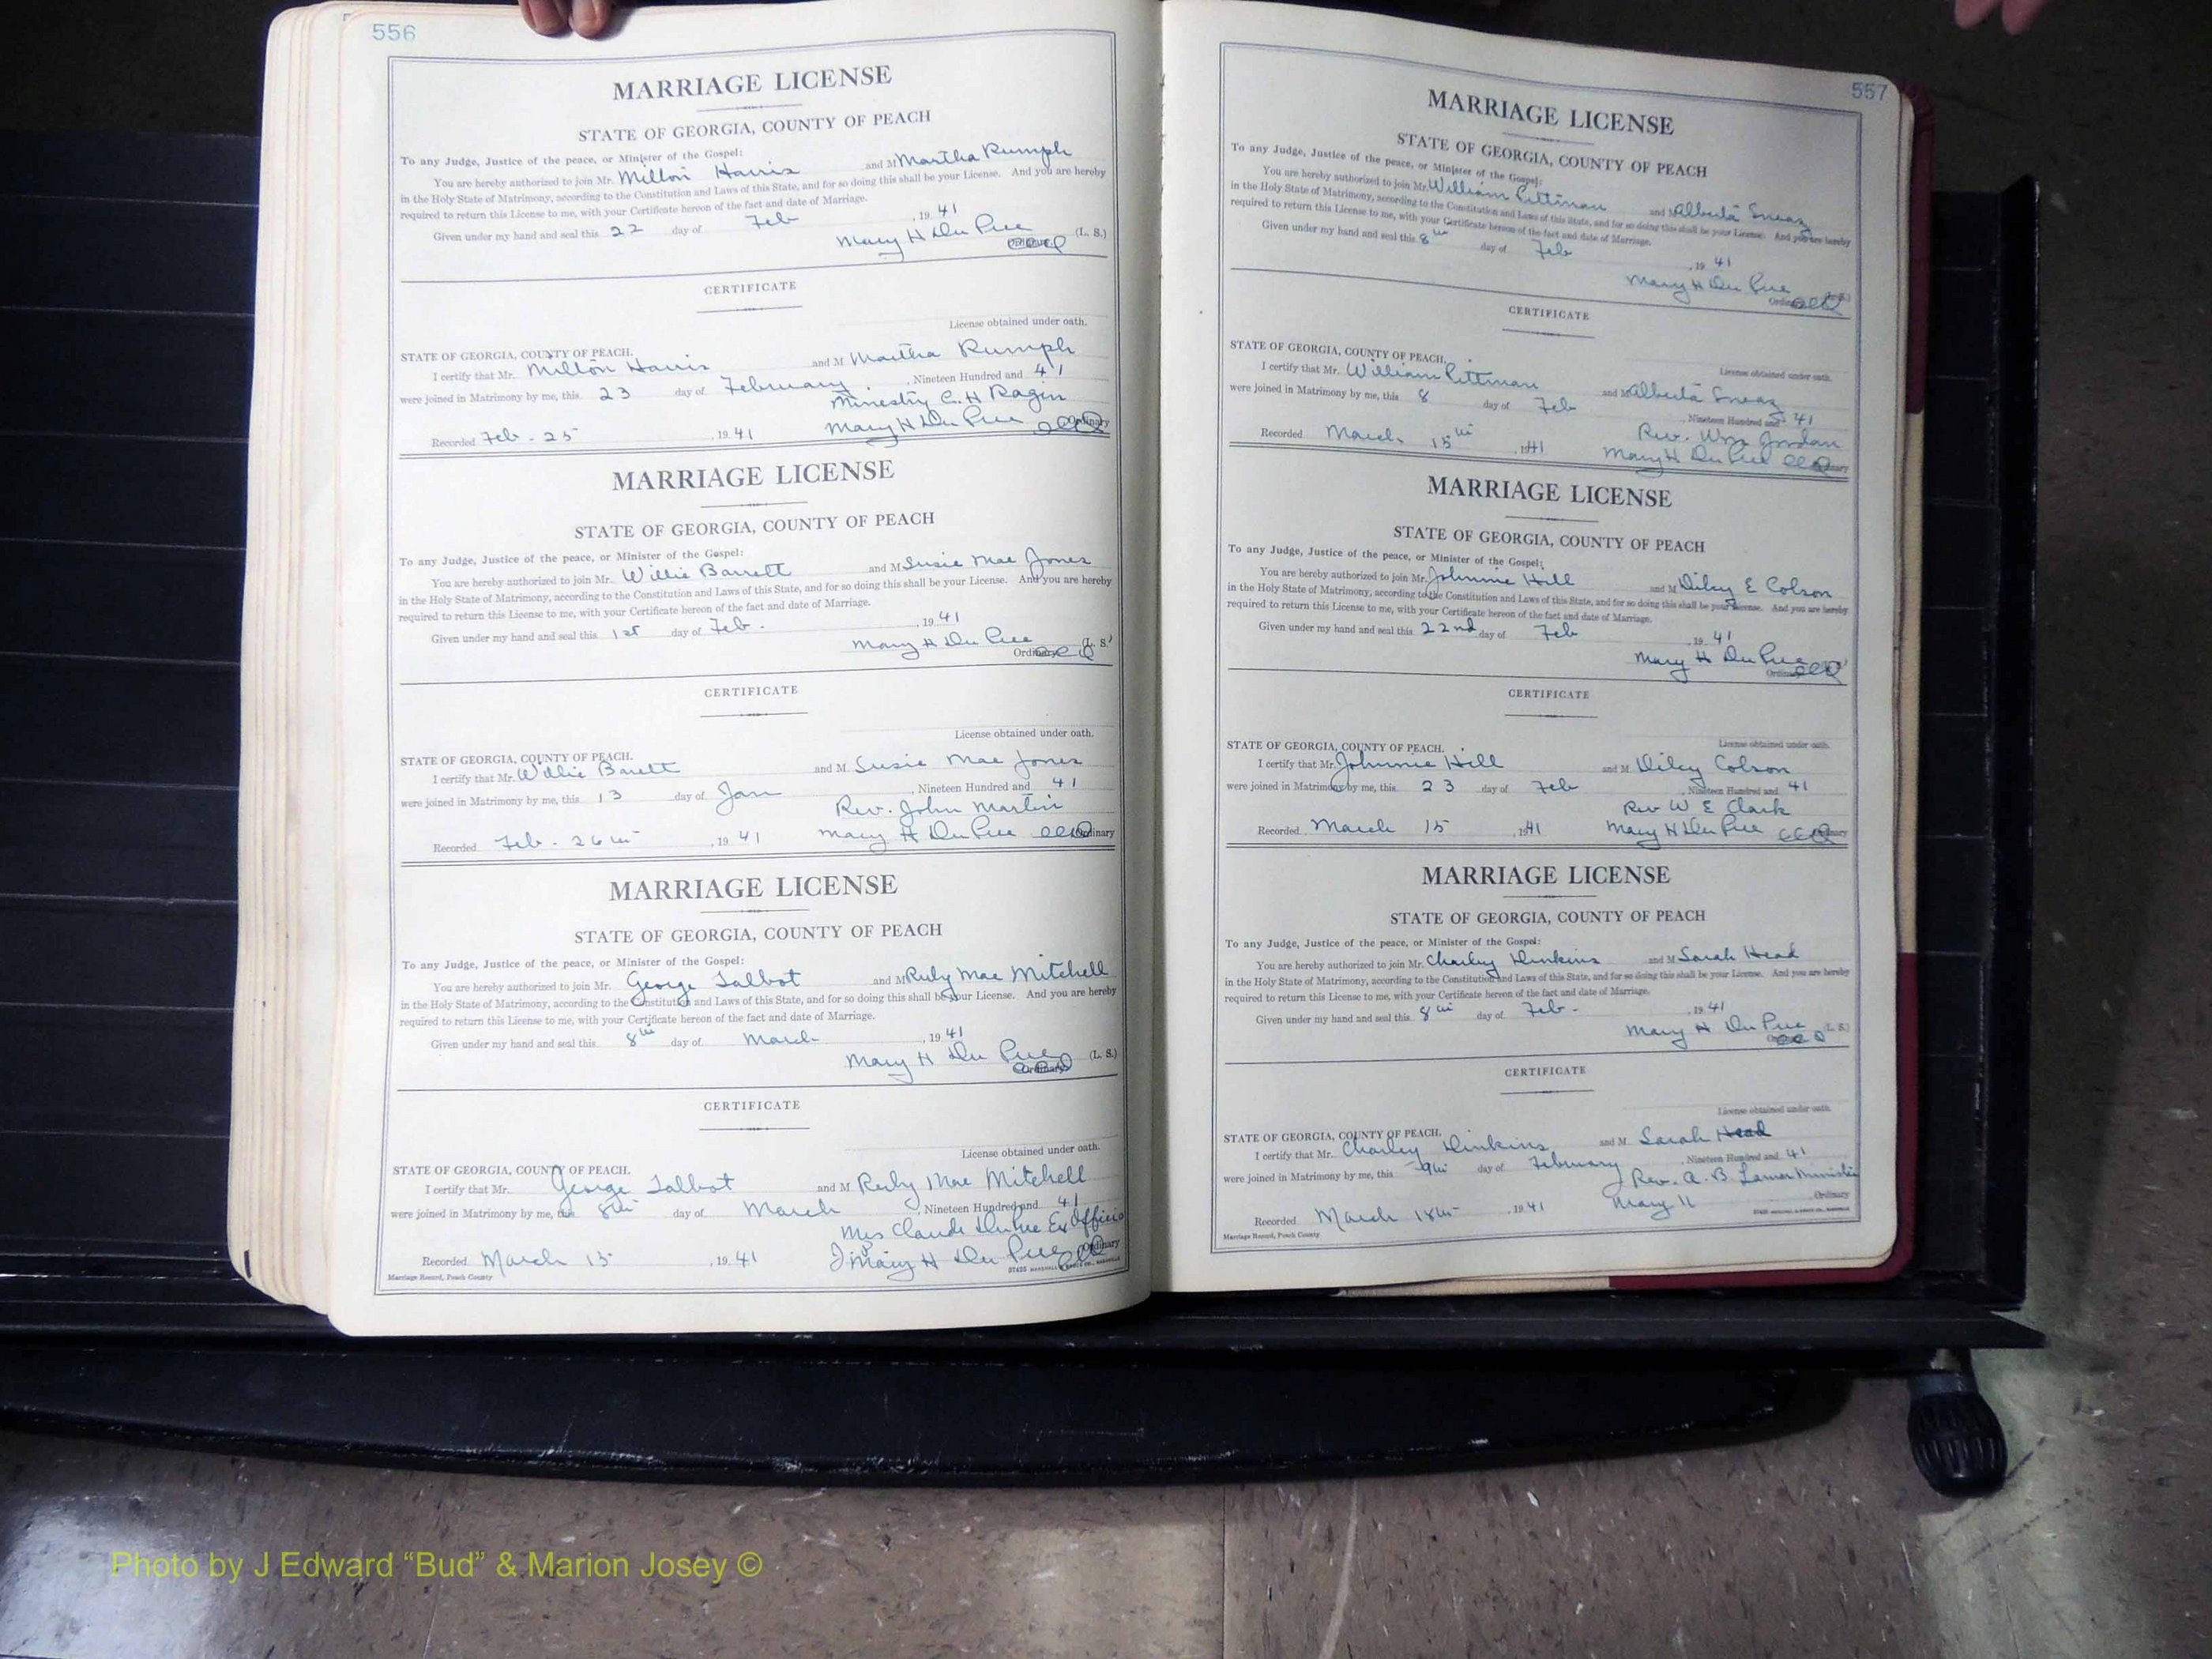 556
MARRIAGE LICENSE
STATE OF GEORGIA, COUNTY OF PEACH
To any Judge, Justice of the peace, or Minister of the Gospel:
You are hereby authorized to join Mr. Milton Harris and M Martha Rumph
in the Holy State of Matrimony, according to the Constitution and Laws of this State, and for so doing this shall be your License. And you are hereby
required to return this License to me, with your Certificate hereon of the fact and date of Marriage.
Given under my hand and seal this 22 day of Feb , 19 41
Mary H Du Pree (L. S.)
CERTIFICATE
License obtained under oath.
STATE OF GEORGIA, COUNTY OF PEACH.
I certify that Mr. Milton Harris and M Martha Rumph
were joined in Matrimony by me, this 23 day of February , Nineteen Hundred and 41
Minestry C. H Ragin
Mary H Du Pree Ordinary
Recorded Feb. 25 , 19 41
MARRIAGE LICENSE
STATE OF GEORGIA, COUNTY OF PEACH
To any Judge, Justice of the peace, or Minister of the Gospel:
You are hereby authorized to join Mr. Willie Barrett and M Susie Mae Jones
in the Holy State of Matrimony, according to the Constitution and Laws of this State, and for so doing this shall be your License. And you are hereby
required to return this License to me, with your Certificate hereon of the fact and date of Marriage.
Given under my hand and seal this 1st day of Feb. , 19 41
Mary H Du Pree (L. S.)
Ordinary
CERTIFICATE
License obtained under oath.
STATE OF GEORGIA, COUNTY OF PEACH.
I certify that Mr. Willie Barett and M Susie Mae Jones
were joined in Matrimony by me, this 13 day of Jan , Nineteen Hundred and 41
Rev. John Martin
Mary H Du Pree Ordinary
Recorded Feb. 26th , 19 41
MARRIAGE LICENSE
STATE OF GEORGIA, COUNTY OF PEACH
To any Judge, Justice of the peace, or Minister of the Gospel:
You are hereby authorized to join Mr. George Talbot and M Ruby Mae Mitchell
in the Holy State of Matrimony, according to the Constitution and Laws of this State, and for so doing this shall be your License. And you are hereby
required to return this License to me, with your Certificate hereon of the fact and date of Marriage.
Given under my hand and seal this 8th day of March , 19 41
Mary H Du Pree (L. S.)
Ordinary
CERTIFICATE
License obtained under oath.
STATE OF GEORGIA, COUNTY OF PEACH.
I certify that Mr. George Talbot and M Ruby Mae Mitchell
were joined in Matrimony by me, this 8th day of March , Nineteen Hundred and 41
Mrs Claude DuPree Ex Officio
Mary H Du Pree Ordinary
Recorded March 15 , 19 41
Marriage Record, Peach County
557
MARRIAGE LICENSE
STATE OF GEORGIA, COUNTY OF PEACH
To any Judge, Justice of the peace, or Minister of the Gospel:
You are hereby authorized to join Mr. William Pittman and M Alberta
in the Holy State of Matrimony, according to the Constitution and Laws of this State, and for so doing this shall be your License. And you are hereby
required to return this License to me, with your Certificate hereon of the fact and date of Marriage.
Given under my hand and seal this 8th day of Feb , 19 41
Mary H Du Pree
Ordinary
CERTIFICATE
License obtained under oath.
STATE OF GEORGIA, COUNTY OF PEACH.
I certify that Mr. William Pittman and M Alberta
were joined in Matrimony by me, this 8 day of Feb , Nineteen Hundred and 41
Rev. Wm Jordan
Mary H Du Pree Ordinary
Recorded March 15th , 1941
MARRIAGE LICENSE
STATE OF GEORGIA, COUNTY OF PEACH
To any Judge, Justice of the peace, or Minister of the Gospel:
You are hereby authorized to join Mr. Johnnie Hill and M Diley E Colson
in the Holy State of Matrimony, according to the Constitution and Laws of this State, and for so doing this shall be your License. And you are hereby
required to return this License to me, with your Certificate hereon of the fact and date of Marriage.
Given under my hand and seal this 22nd day of Feb , 19 41
Mary H Du Pree
Ordinary
CERTIFICATE
License obtained under oath.
STATE OF GEORGIA, COUNTY OF PEACH.
I certify that Mr. Johnnie Hill and M Diley Colson
were joined in Matrimony by me, this 23 day of Feb , Nineteen Hundred and 41
Rev W E Clark
Mary H Du Pree Ordinary
Recorded March 15 , 1941
MARRIAGE LICENSE
STATE OF GEORGIA, COUNTY OF PEACH
To any Judge, Justice of the peace, or Minister of the Gospel:
You are hereby authorized to join Mr. Charley Dinkins and M Sarah Head
in the Holy State of Matrimony, according to the Constitution and Laws of this State, and for so doing this shall be your License. And you are hereby
required to return this License to me, with your Certificate hereon of the fact and date of Marriage.
Given under my hand and seal this 8th day of Feb. , 19 41
Mary H Du Pree (L. S.)
CERTIFICATE
License obtained under oath.
STATE OF GEORGIA, COUNTY OF PEACH.
I certify that Mr. Charley Dinkins and M Sarah Head
were joined in Matrimony by me, this 9th day of February , Nineteen Hundred and 41
Rev. A. B Lamar Minister
Mary H Ordinary
Recorded March 18th , 19 41
Marriage Record, Peach County
Photo by J Edward “Bud” & Marion Josey ©